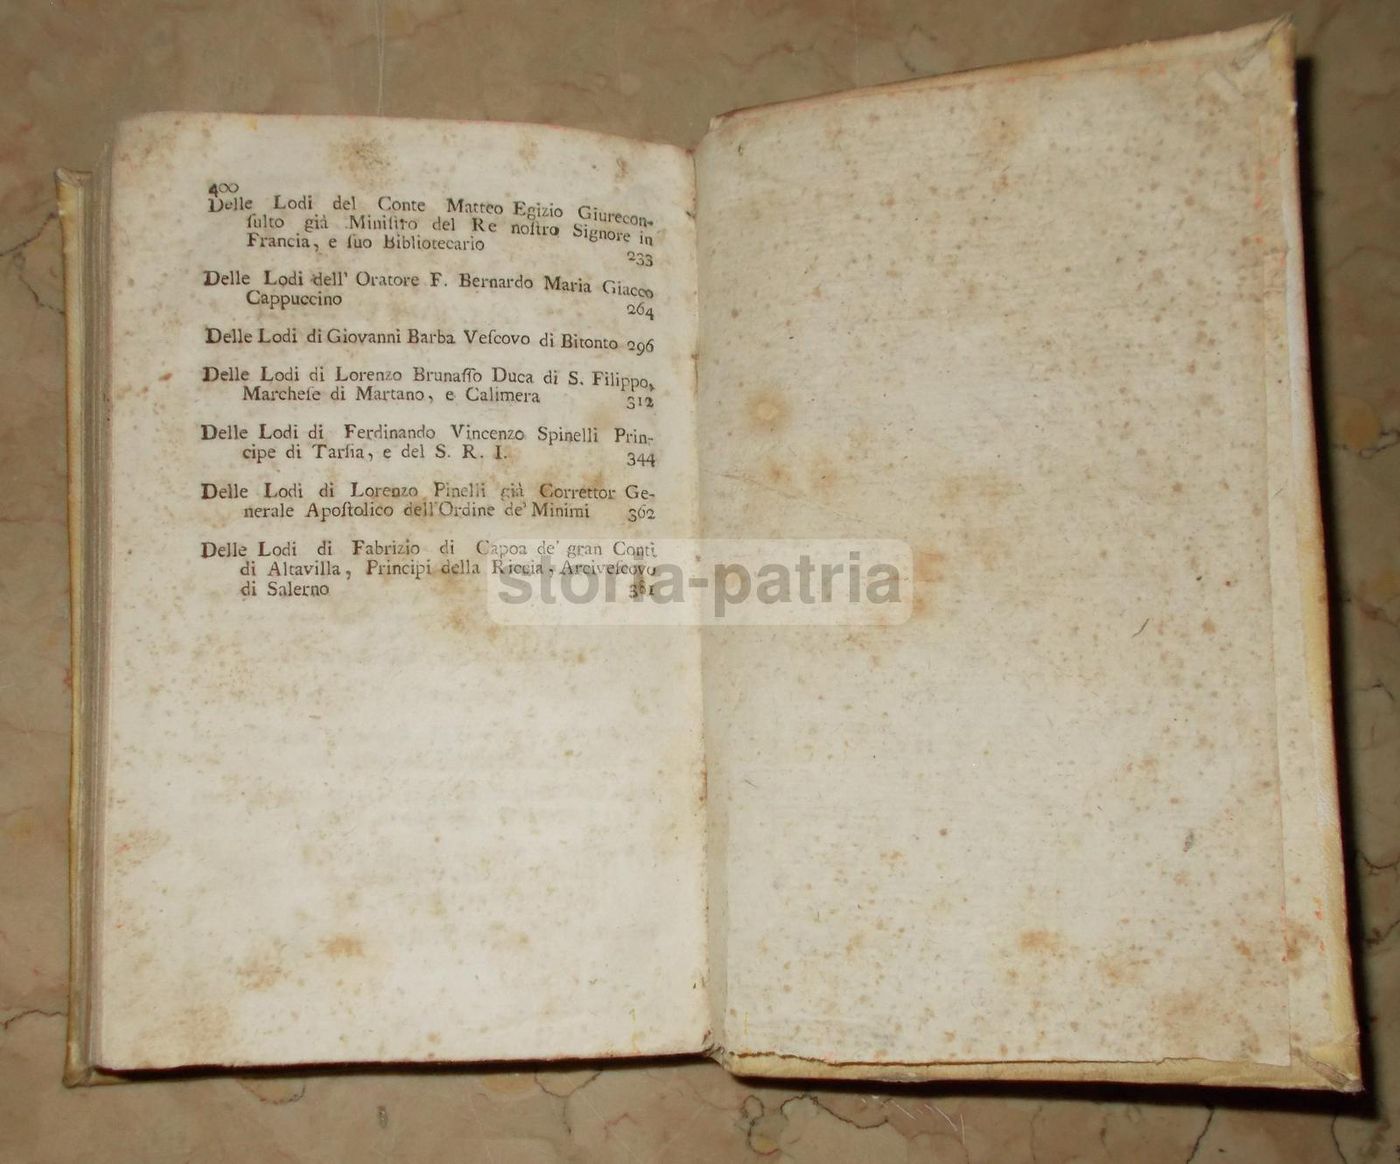 400
Delle Lodi del Conte Matteo Egizio Giurecon-
ſulto già Miniſtro del Re noſtro Signore in
Francia, e ſuo Bibliotecario 233
Delle Lodi dell' Oratore F. Bernardo Maria Giacco
Cappuccino 264
Delle Lodi di Giovanni Barba Veſcovo di Bitonto 296
Delle Lodi di Lorenzo Brunaſſo Duca di S. Filippo,
Marcheſe di Martano, e Calimera 312
Delle Lodi di Ferdinando Vincenzo Spinelli Prin-
cipe di Tarſia, e del S. R. I. 344
Delle Lodi di Lorenzo Pinelli già Correttor Ge-
nerale Apoſtolico dell'Ordine de' Minimi 362
Delle Lodi di Fabrizio di Capoa de' gran Conti
di Altavilla, Principi della Riccia, Arciveſcovo
di Salerno 381
storia-patria